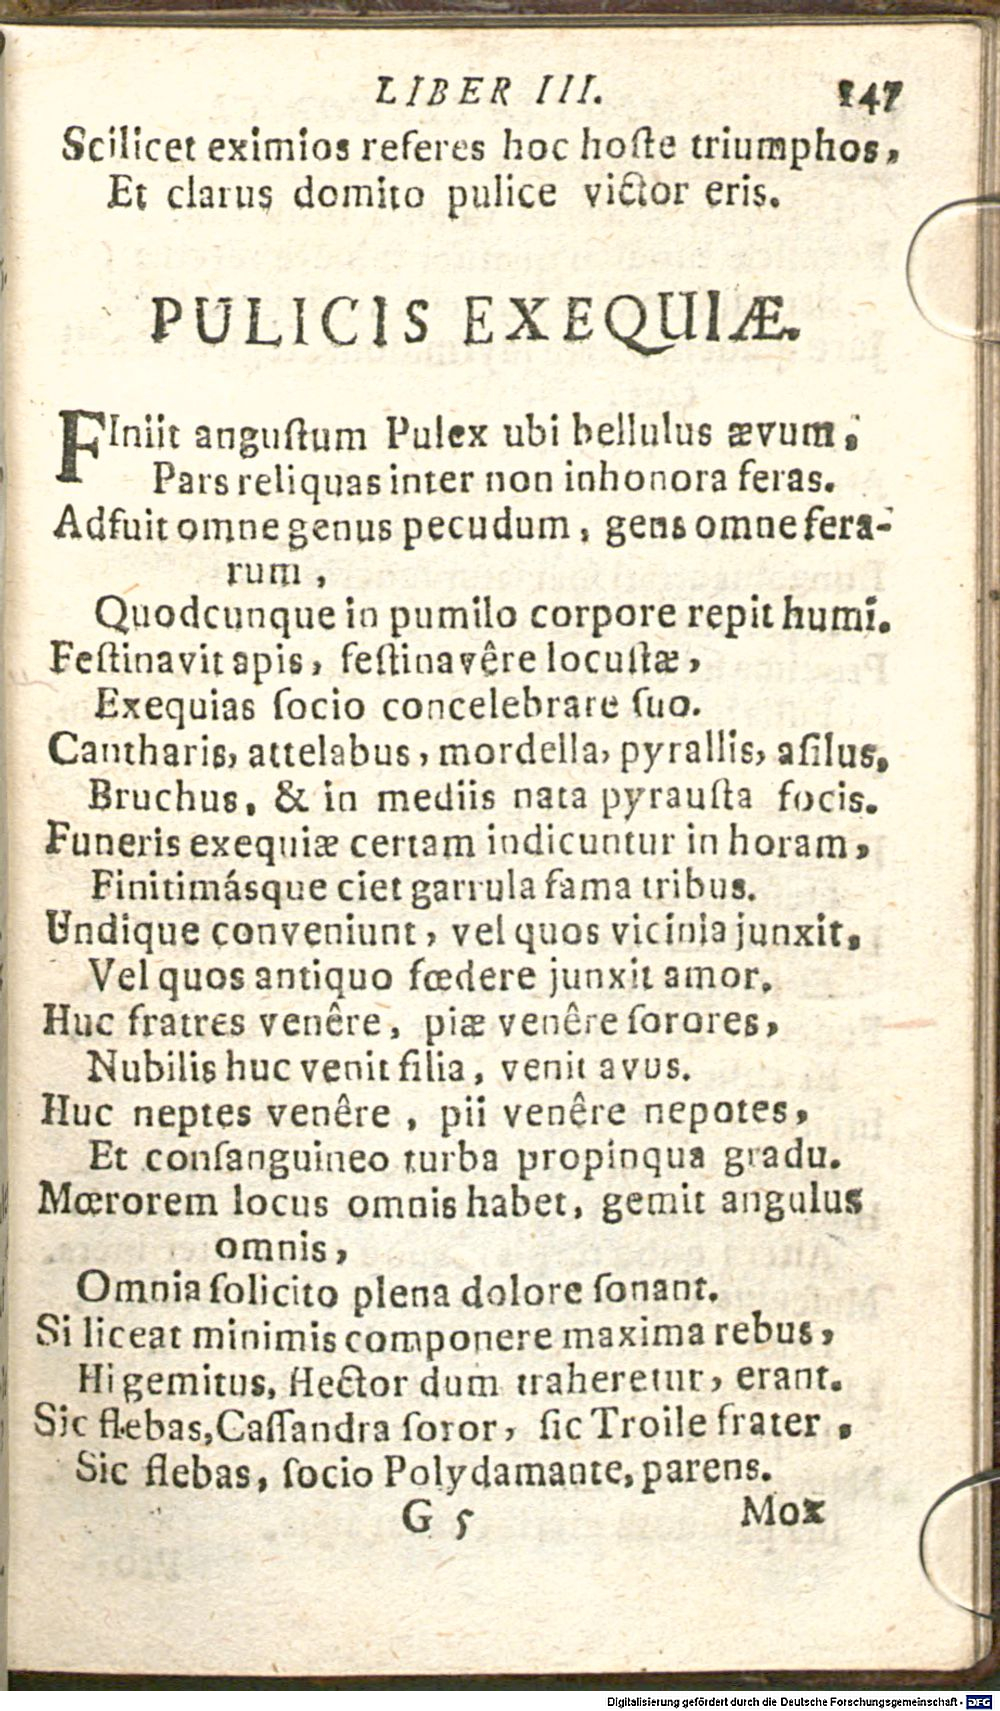 LIBER III. 147
Scilicet eximios referes hoc hoſte triumphos,
Et clarus domito pulice victor eris.
PULICIS EXEQUIÆ.
FIniit anguſtum Pulex ubi bellulus ævum,
Pars reliquas inter non inhonora feras.
Adfuit omne genus pecudum, gens omne fera-
rum,
Quodcunque in pumilo corpore repit humi.
Feſtinavit apis, feſtinavêre locuſtæ,
Exequias ſocio concelebrare ſuo.
Cantharis, attelabus, mordella, pyrallis, aſilus,
Bruchus, & in mediis nata pyrauſta focis.
Funeris exequiæ certam indicuntur in horam,
Finitimásque ciet garrula fama tribus.
Undique conveniunt, vel quos vicinia junxit,
Vel quos antiquo fœdere junxit amor.
Huc fratres venêre, piæ venêre ſorores,
Nubilis huc venit filia, venit avus.
Huc neptes venêre, pii venêre nepotes,
Et conſanguineo turba propinqua gradu.
Mœrorem locus omnis habet, gemit angulus
omnis,
Omnia ſolicito plena dolore ſonant.
Si liceat minimis componere maxima rebus,
Hi gemitus, Hector dum traheretur, erant.
Sic flebas, Caſſandra ſoror, ſic Troile frater,
Sic flebas, ſocio Polydamante, parens.
G 5 Mox
Digitalisierung gefördert durch die Deutsche Forschungsgemeinschaft - DFG